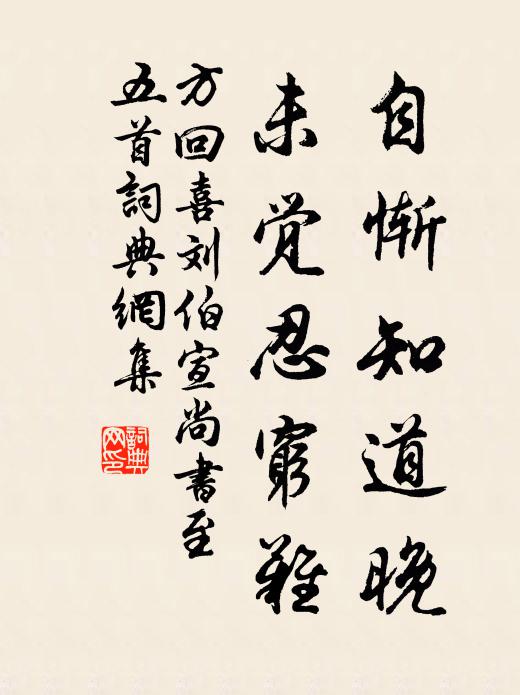 自惭知道晚
未觉忍穷难
方回喜刘伯宣尚书至
五首詞典網集
詞典网印